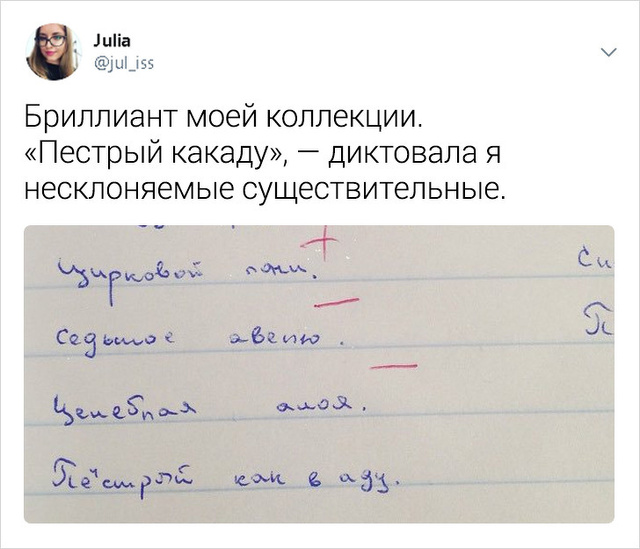 Julia
@jul_iss
Бриллиант моей коллекции.
«Пестрый какаду», — диктовала я
несклоняемые существительные.
Цирковой пони.
Седьмое авеню.
Целебная алоя.
Пёстрый как в аду.